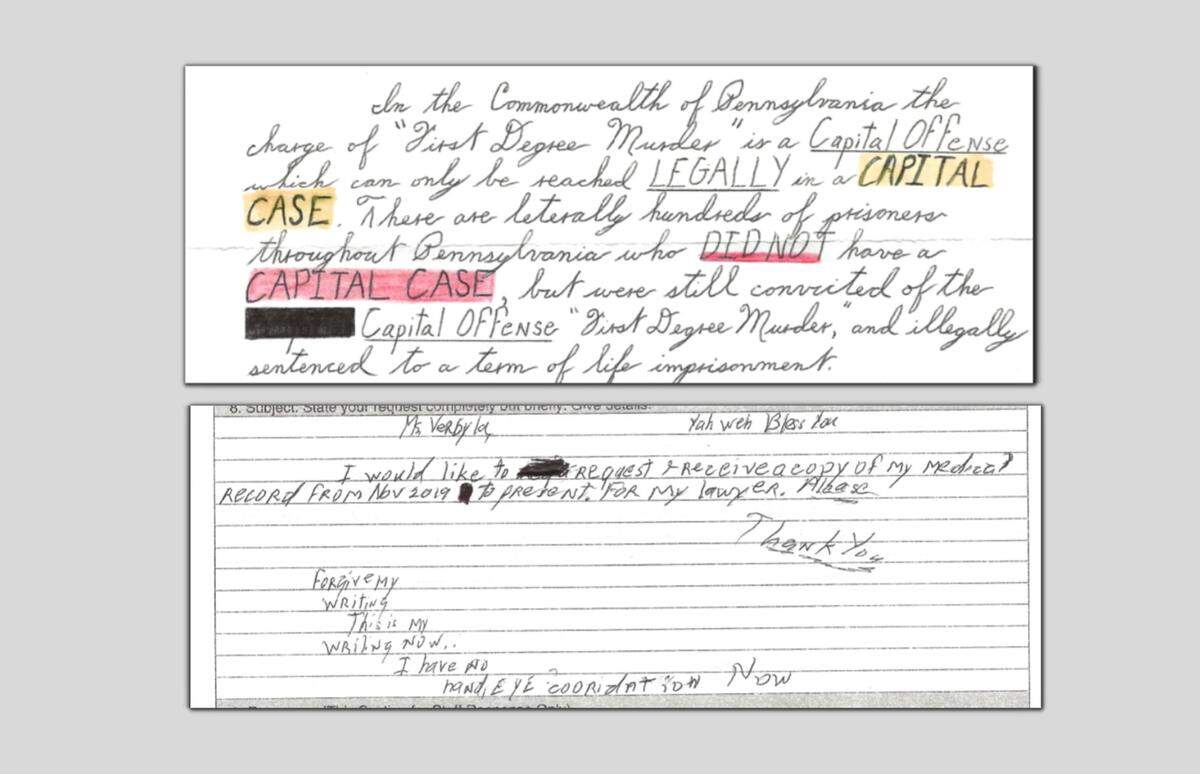 In the Commonwealth of Pennsylvania the
charge of "First Degree Murder" is a Capital OFFense
which can only be reached LEGALLY in a CAPITAL
CASE. There are leterally hundreds of prisoners
throughout Pennsylvania who DID NOT have a
CAPITAL CASE, but were still convicted of the
Capital OFFense "First Degree Murder," and illegally
sentenced to a term of life imprisonment.
8. Subject: State your request completely but briefly. Give details.
Ms Verbyla, Yah weh Bless You
I would like to request & receive a copy of my medical
RECORD FROM NOV 2019 to present. FOR My lawyer. Please
Thank You
Forgive My
WRITING
This is My
WRITING NOW..
I have NO
hand, EYE COORIDATION NOW
(This Section for Staff Response Only)